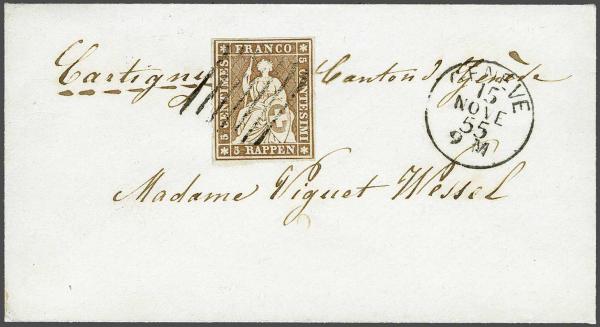 Cartigny Canton d. Genève
FRANCO
5 CENTIMES
5 CENTESIMI
5 RAPPEN
GENEVE
15
NOVE
55
9 M
Madame Viguet Wessel